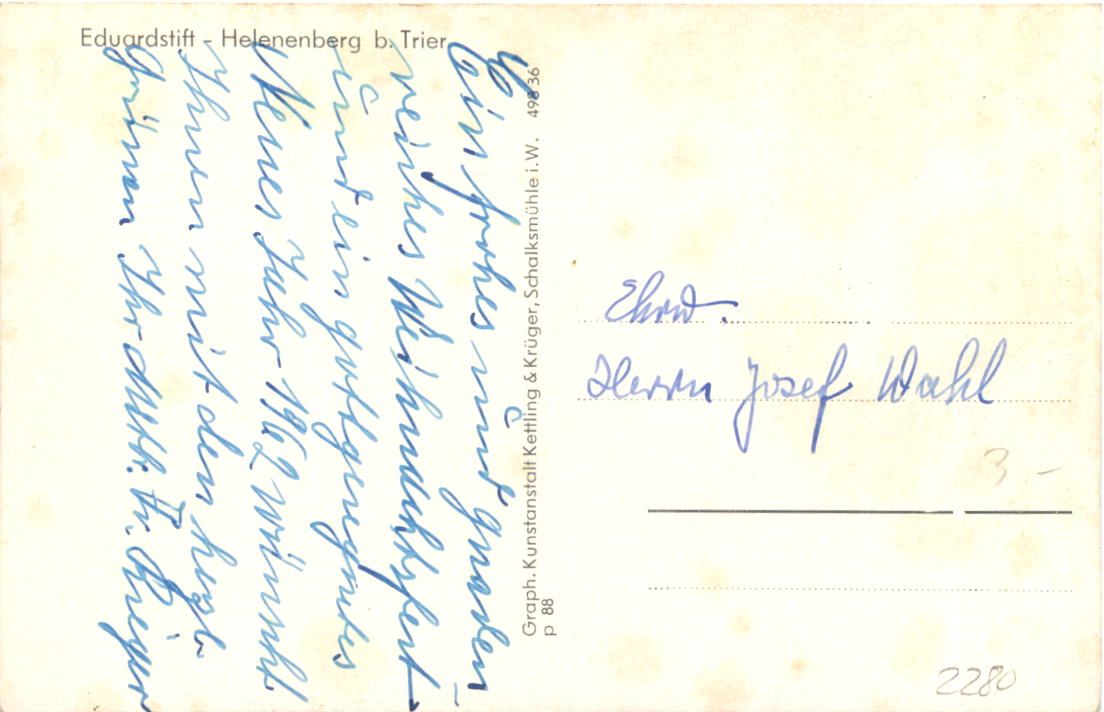 Eduardstift - Helenenberg b. Trier
Ein frohes und gnaden-
reiches Weihnachtsfest
und ein gottgesegnetes
Neues Jahr 1962 wünscht
Ihnen mit den herzl.
Grüßen Ihr
Fr. Krieger
Graph. Kunstanstalt Kettling & Krüger, Schalksmühle i. W. 49836
p 88
Ehrw.
Herrn Josef Wahl
3 -
2280